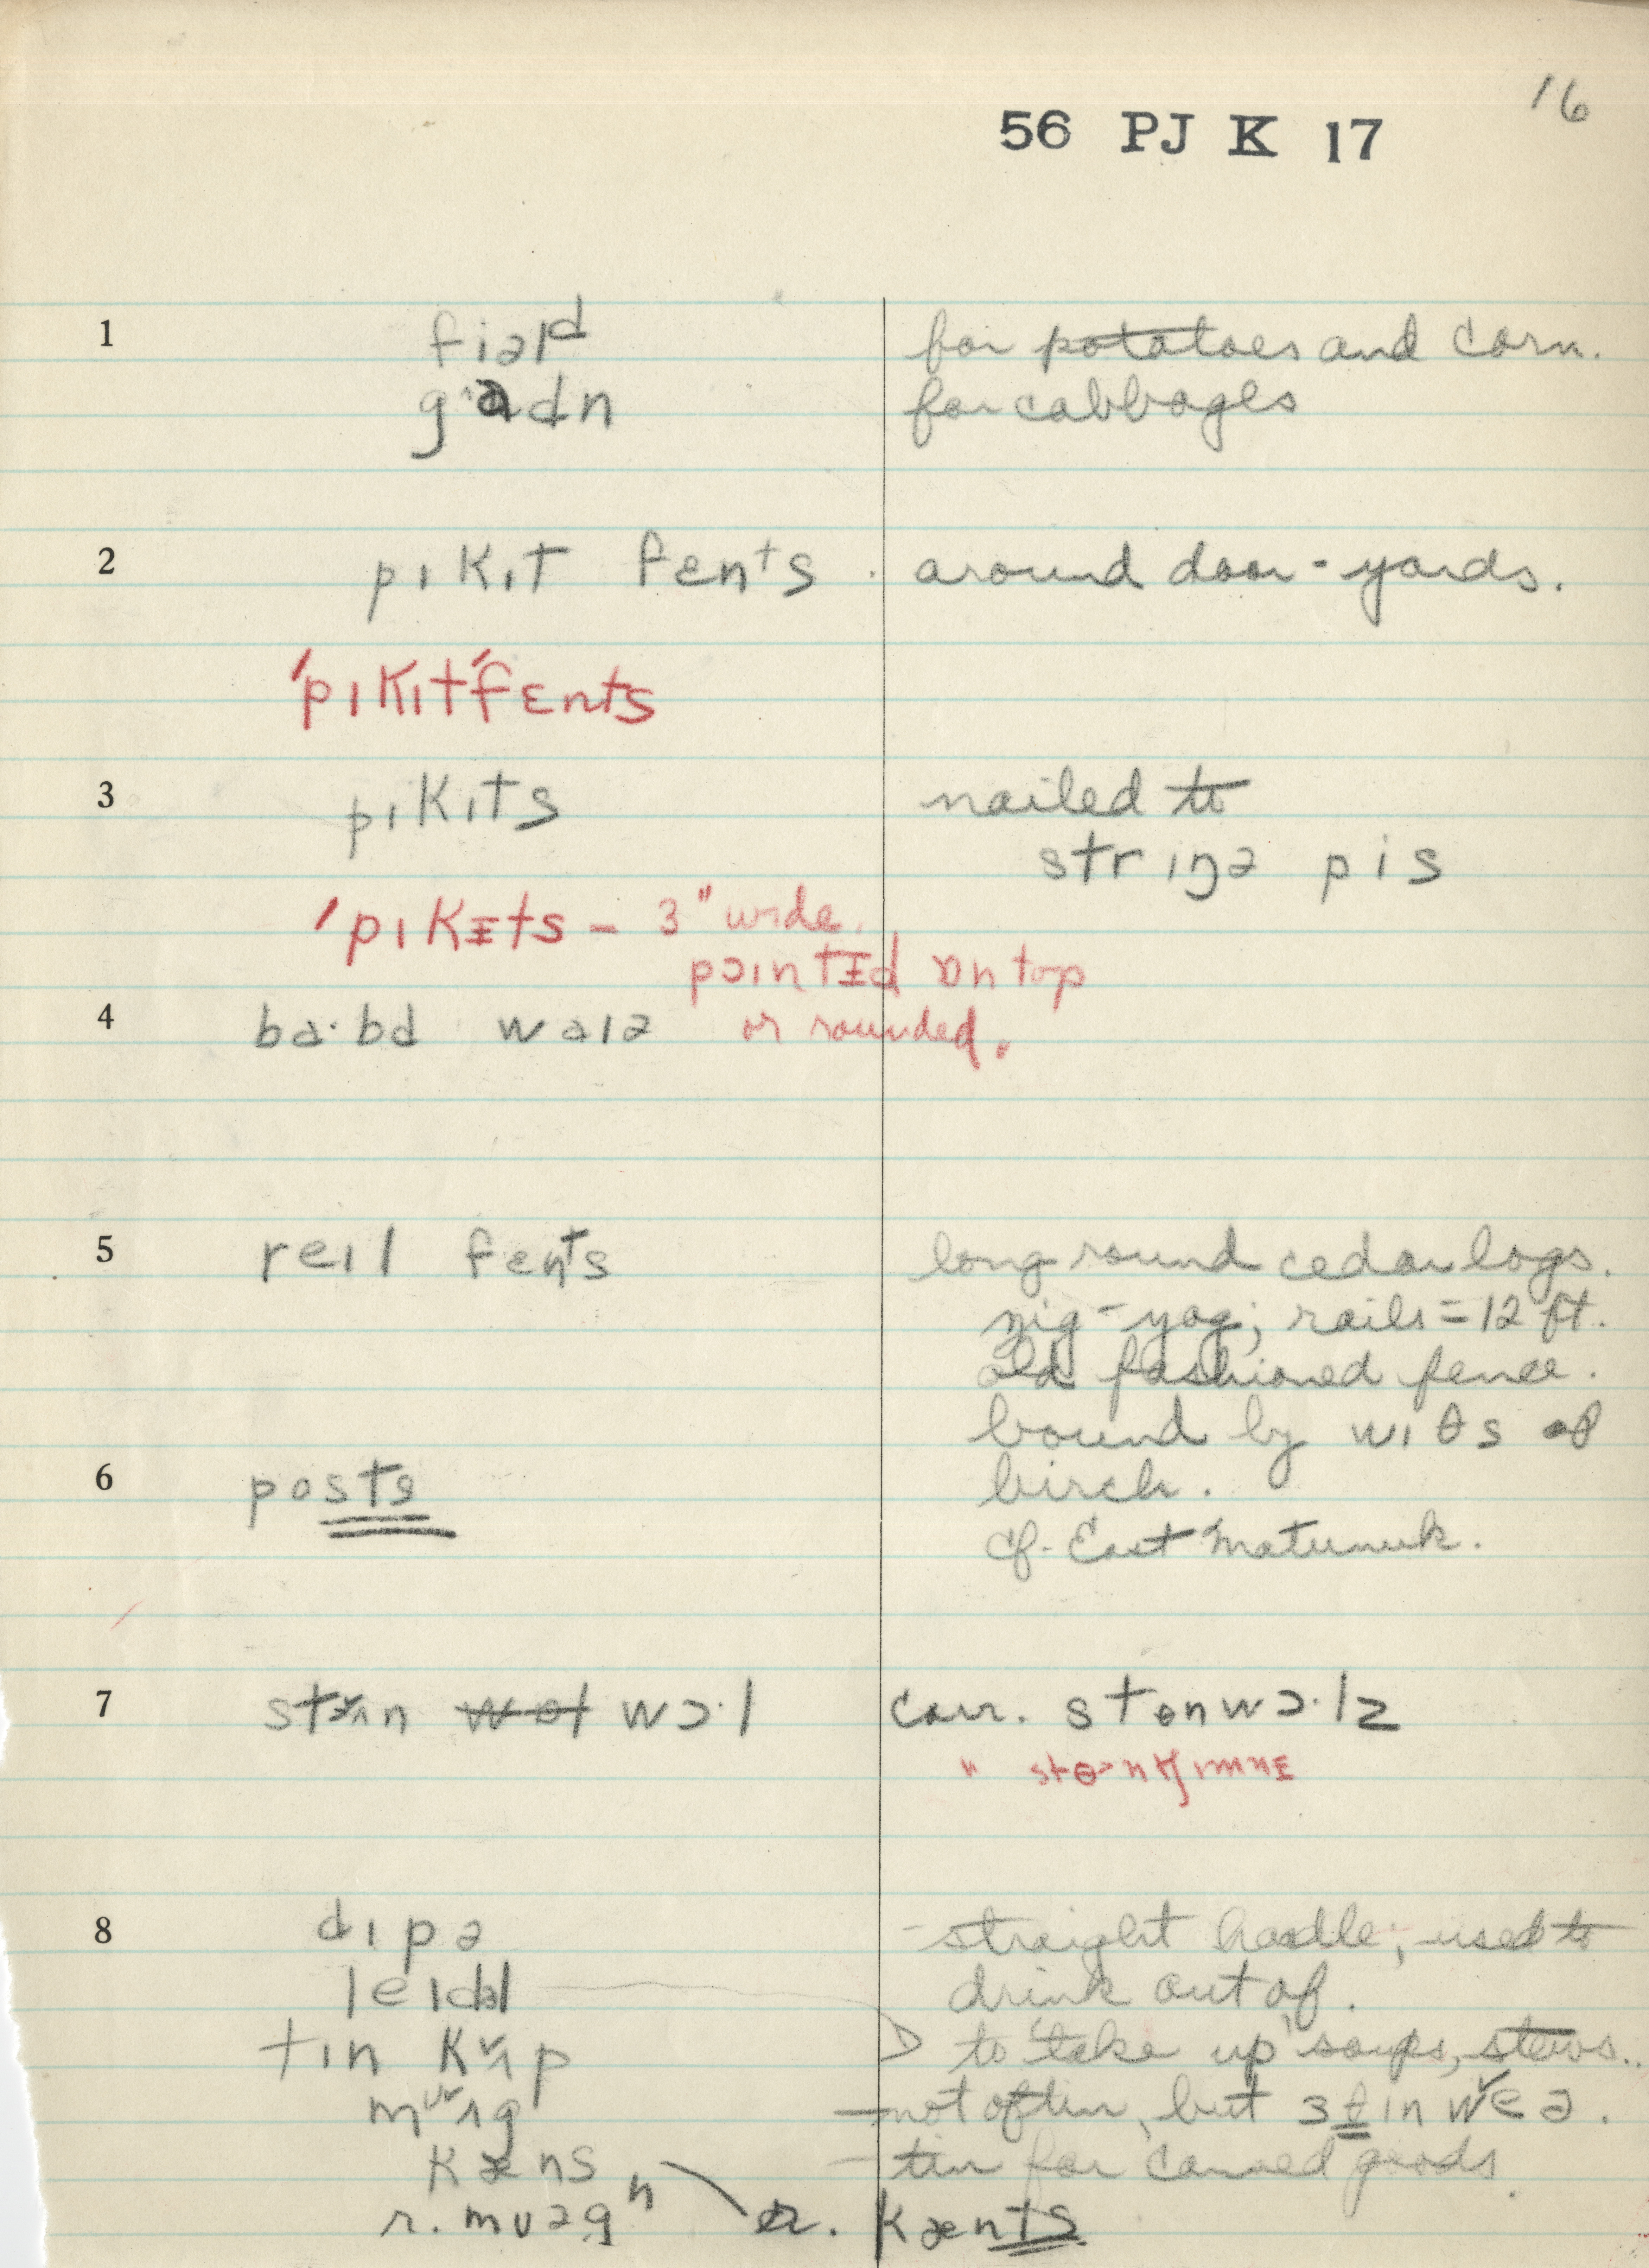 16
56 PJ K 17
1 fiəld for potatoes and corn.
gadn for cabbages
2 pɪkɪt fents . around door-yards.
'pɪkɪt'fɛnts
3 pɪkɪts nailed to
strɪŋə pis
'pɪkɪts – 3" wide.
pɔɪntɪd ɒn top
4 ba·bd waɪə or rounded.
5 reɪl fents long round cedar logs.
zig-zag; rails = 12 ft.
old fashioned fence.
bound by wɪθs of
6 posts birch.
cf. East Matunuk.
7 wɔ·l corr. stɵnwɔ·lz
"
8 dɪpə - straight handle; used to
leɪdl drink out of.
tɪn kʌp to 'take up' soups, stews..
mʌg – not often, but
kæns – tin for canned goods.
r. mʊəg r. kænts